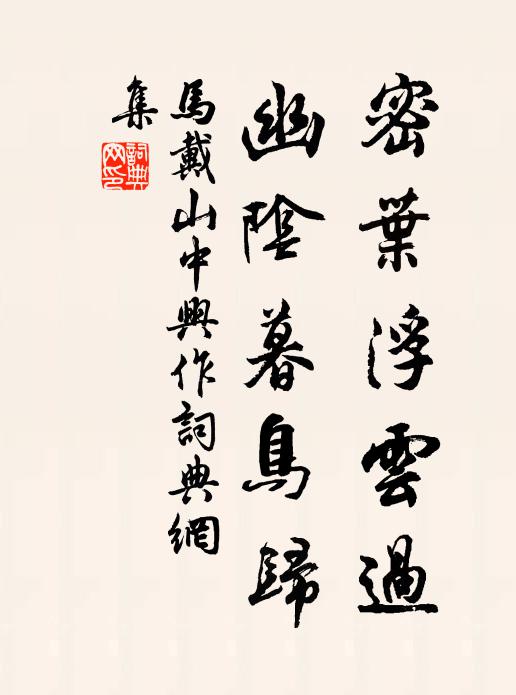 密葉浮雲過
幽陰暮鳥歸
馬戴山中興作詞典網
集
詞典
网印